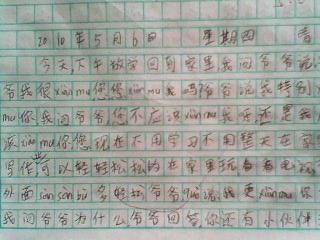 2010年5月6日 星期四 春
今天,下午放学回到家里我问爷爷说
爷我很xiàn mù您您xiàn mù我吗?爷爷说我特别
mù你我问爷爷您不应该xiàn mù我还是我
该xiàn mù你您现在不用学习不用整天在
写作业可以轻轻松松的在家里玩看看电
外面sàn sàn bù多轻松爷爷说我更xiàn mù你
我问爷爷为什么爷爷回答,你还有小伙伴